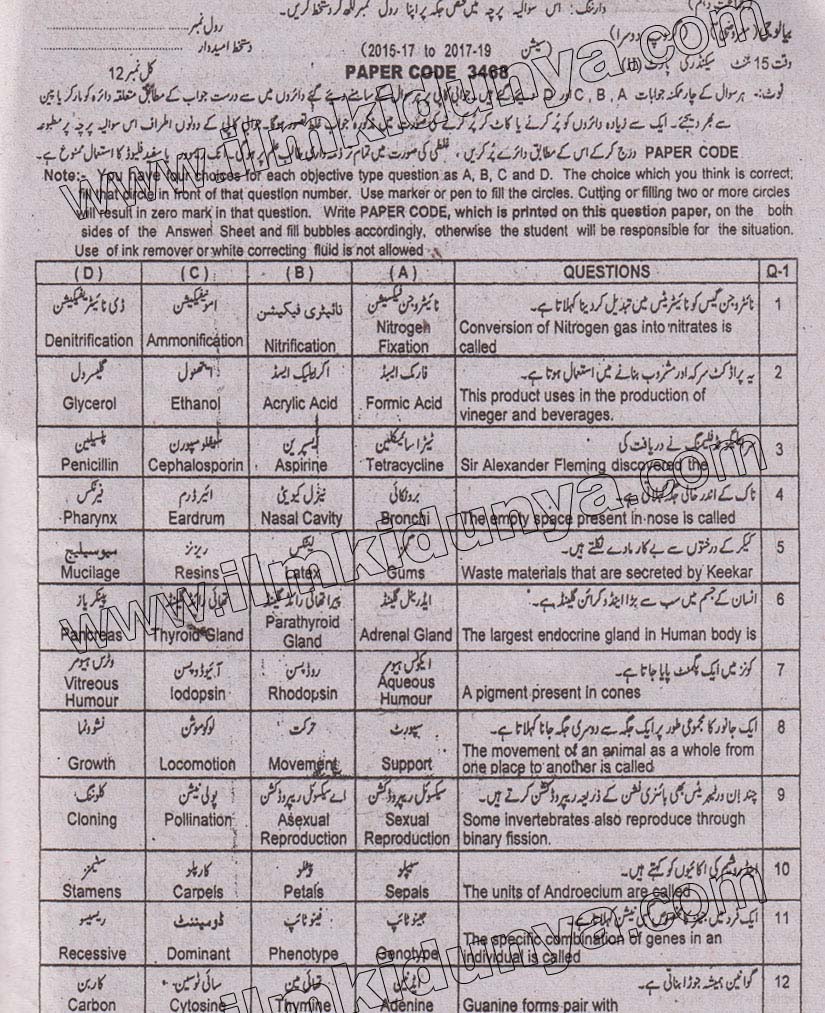 وارننگ: اس سوالیہ پرچہ میں مختص جگہ پر اپنا رول نمبر لکھ کر دستخط کریں۔
رول نمبر
(2015-17 to 2017-19) سیشن
دستخط امیدوار
وقت 15 منٹ سیکنڈری پارٹ (II) PAPER CODE 3468 کل نمبر 12
نوٹ:- ہر سوال کے چار ممکنہ جوابات C, B, A اور D
PAPER CODE درج کر کے اس کے مطابق دائرے پُر کریں،
Note:- You have four choices for each objective type question as A, B, C and D. The choice which you think is correct;
fill that circle in front of that question number. Use marker or pen to fill the circles. Cutting or filling two or more circles
will result in zero mark in that question. Write PAPER CODE, which is printed on this question paper, on the both
sides of the Answer Sheet and fill bubbles accordingly, otherwise the student will be responsible for the situation.
Use of ink remover or white correcting fluid is not allowed
( D ) ( C ) ( B ) ( A ) QUESTIONS Q-1
ڈی نائیٹریفیکیشن امونیفیکیشن نائیٹری فیکیشن نائیٹروجن فکسیشن نائٹروجن گیس کو نائیٹریٹس میں تبدیل کر دینا کہلاتا ہے۔ 1
Denitrification Ammonification Nitrification Nitrogen Fixation Conversion of Nitrogen gas into nitrates is
called
گلیسرول ایتھنول اکریلیک ایسڈ فارمک ایسڈ یہ پراڈکٹ سرکہ اور مشروب بنانے میں استعمال ہوتا ہے۔ 2
Glycerol Ethanol Acrylic Acid Formic Acid This product uses in the production of
vineger and beverages.
پنسلین سیفلوسپورن ایسپرین ٹیٹراسائیکلین سر الیگزینڈر فلیمنگ نے دریافت کی 3
Penicillin Cephalosporin Aspirine Tetracycline Sir Alexander Fleming discovered the
فیرنکس ائیر ڈرم نیزل کیویٹی برونکائی ناک کے اندر خالی جگہ کہلاتی ہے۔ 4
Pharynx Eardrum Nasal Cavity Bronchi The empty space present in nose is called
میوسیلیج ریزنز لیٹکس گمز کیکر کے درختوں سے بے کار مادے نکلتے ہیں۔ 5
Mucilage Resins Latex Gums Waste materials that are secreted by Keekar
پینکریاز تھائی رائڈ گلینڈ پیرا تھائی رائڈ گلینڈ ایڈرینل گلینڈ انسان کے جسم میں سب سے بڑا اینڈوکرائن گلینڈ ہے۔ 6
Pancreas Thyroid Gland Parathyroid Gland Adrenal Gland The largest endocrine gland in Human body is
وٹرس ہیومر آئیوڈوپسن روڈوپسن ایکوئس ہیومر کونز میں ایک پگمنٹ پایا جاتا ہے۔ 7
Vitreous Humour Iodopsin Rhodopsin Aqueous Humour A pigment present in cones
نشوونما لوکوموشن حرکت سپورٹ ایک جانور کا مجموعی طور پر ایک جگہ سے دوسری جگہ جانا کہلاتا ہے۔ 8
Growth Locomotion Movement Support The movement of an animal as a whole from
one place to another is called
کلوننگ پولی نیشن اے سیکسوئل ریپروڈکشن سیکسوئل ریپروڈکشن چند ان ورٹیبریٹس بھی بائنری فشن کے ذریعہ ریپروڈکشن کرتے ہیں۔ 9
Cloning Pollination Asexual Reproduction Sexual Reproduction Some invertebrates also reproduce through
binary fission.
سٹیمنز کارپلز پیٹلز سیپلز اینڈریشیم کی اکائیوں کو کہتے ہیں۔ 10
Stamens Carpels Petals Sepals The units of Androecium are called
ریسیسو ڈومیننٹ فینوٹائپ جینوٹائپ ایک فرد میں 11
Recessive Dominant Phenotype Genotype The specific combination of genes in an
individual is called
کاربن سائی ٹوسین تھائی مین ایڈنین گوانین ہمیشہ جوڑا بناتی ہے۔ 12
Carbon Cytosine Thymine Adenine Guanine forms pair with
www.ilmkidunya.com
www.ilmkidunya.com
www.ilmkidunya.com